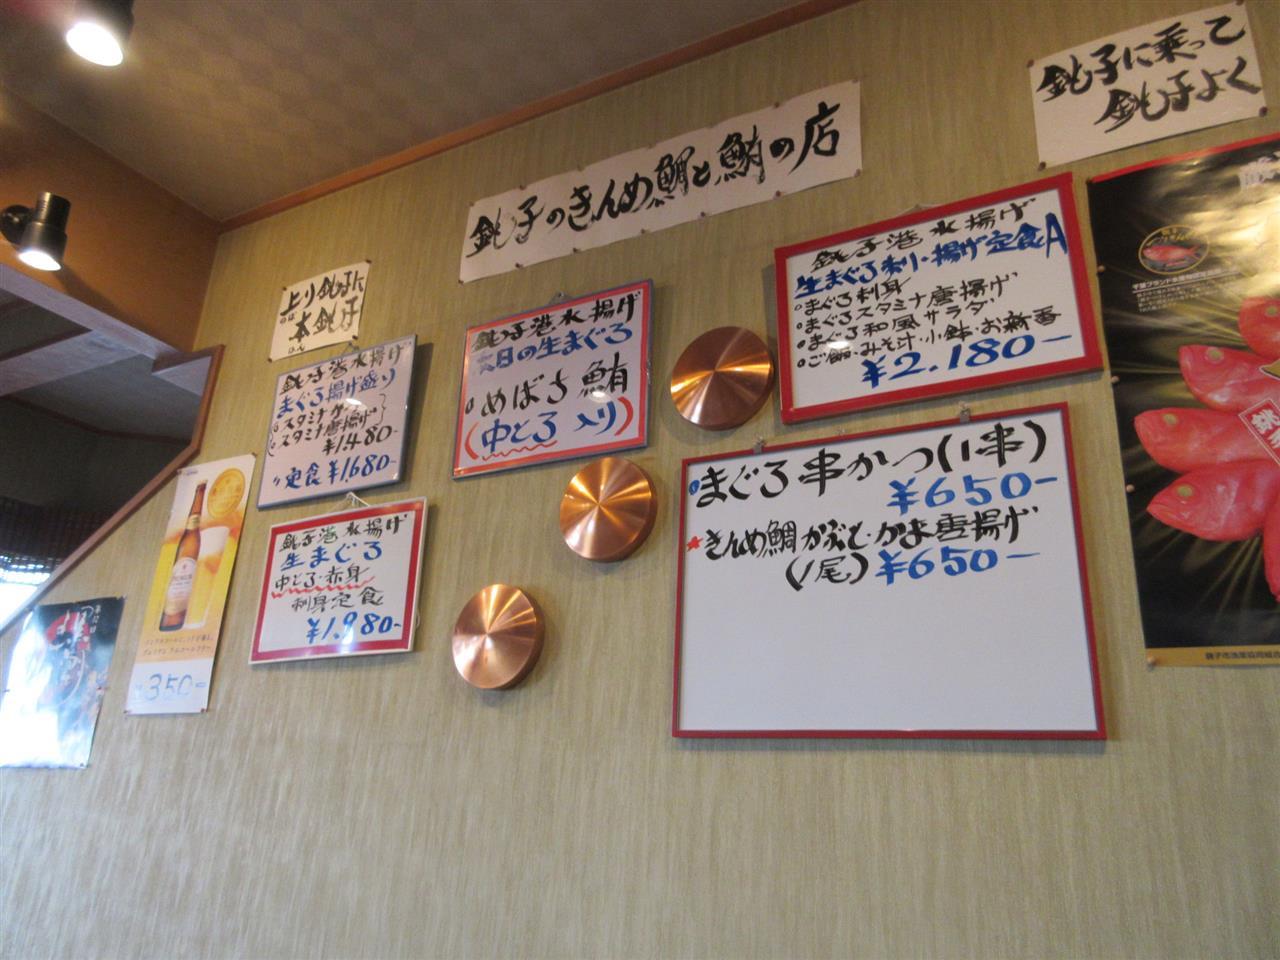 銚子に乗って
銚子よく
銚子のきんめ鯛と鮪の店
上り銚子に
のぼ
本銚子
ほん
銚子港水揚げ
まぐろ揚げ盛り
スタミナ唐揚げ
¥1.480-
定食¥1.680-
銚子港水揚げ
生まぐろ
中とろ・赤身
刺身定食
¥1.980-
銚子港水揚げ
本日の生まぐろ
めばち鮪
(中とろ入り)
銚子港水揚げ
生まぐろ刺し・揚げ定食A
まぐろ刺身
まぐろスタミナ唐揚げ
まぐろ和風サラダ
ご飯・みそ汁・小鉢・お新香
¥2.180-
まぐろ串かつ(1串)
¥650-
★きんめ鯛かぶと・かま唐揚げ
(1尾)¥650-
350-
千葉ブランド水産物認定品
銚子市漁業協同組合